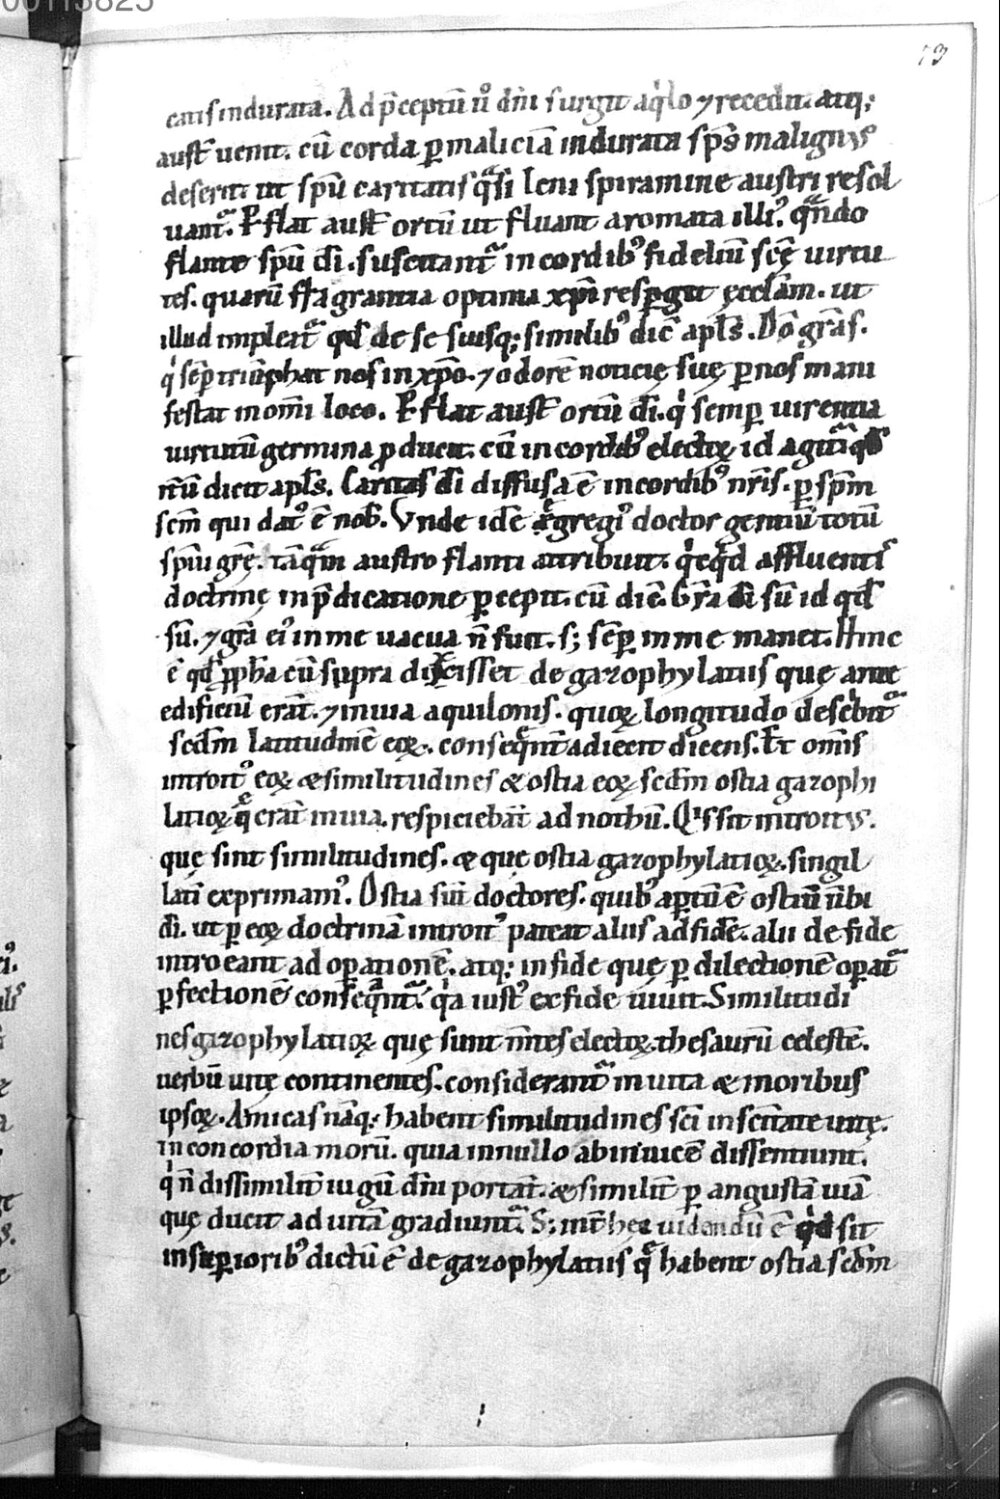 00113825
13
catis indurata. Ad p̄ceptū u̾ dn̄i surgit aq̇lo ⁊ recedit. atq;
aust̄ uenit. cū corda ꝑ maliciā indurata sp̄s malignus
deserit ut sp̄u caritatis q̊si leni spiramine austri resol
uant᷑. Ꝑflat aust̄ ortū ut fluant aromata illi᾿. qn̄do
flante sp̄u dī. suscitant᷑ in cordib᾿ fideliū scę̄ uirtu
tes. quarū fragrantia optima xp̄i respgit ęcclām. ut
illud impleat᷑ qd̄ de se suisq; similib᾿ dic̄ apl̄s. Dō grās.
q̇ sēp triūphat nos in xp̄o. ⁊ odorē noticię suę ꝑ nos mani
festat in om̄i loco. Ꝑflat aust̄ ortū dī. q̇ semper uirentia
uirtutū germina ꝓducit. cū in cordib᾿ electoꝝ id agit᷑ qd̄
n̄ū dicit apl̄s. Caritas dī diffusa ē in cordib᾿ nr̄is. ꝑ sp̄m
scm̄ qui dat᾿ ē nob̄. Vnde idē egregi᾿ doctor gentiū totū
sp̄iu grę̄. tāq̊m austro flanti attribuit. q̇cq̇d affluenti᾿
doctrinę in p̄dicatione ꝑcepit. cū dic̄. Gr̄a dī sū id qd̄
sū. ⁊ grā ei᾿ in me uacua n̄ fuit. s; sēp in me manet. Hinc
ē qd̄ ꝓph̄a cū supra dixisset de gazophylatiis que ante
edificiū erāt. ⁊ in uia aquilonis. quoꝝ longitudo desc̄bit᷑
scd̄m latitudinē eoꝝ. conseq̄nt̄ adiecit dicens. Et om̄is
introit᾿ eoꝝ & similitudines & ostia eoꝝ scd̄m ostia gazophi
latioꝝ q̄ erāt in uia. respiciebāt ad nothū. Quis sit introitus.
quę sint similitudines. & quę ostia gazophylatioꝝ. singil
lati exprimam᾿. Ostia sūt doctores. quib᾿ aptū ē ostiū ūbi
dī. ut ꝑ eoꝝ doctrinā introit᾿ pateat aliis ad fidē. alii de fide
introeant ad opationē. atq; in fide quę ꝑ dilectionē opat᷑
ꝑfectionē conseq̄nt᷑. q̇a iust᾿ ex fide uiuit. Similitudi
nes gazophylatioꝝ que sunt m̄tes electoꝝ. thesaurū celestē.
uerbū uitę continentes. considerant᷑ in uita & moribus
ipsoꝝ. Amicas nāq; habent similitudines sci in scitate uitę.
in concordia morū. quia in nullo ab inuicē dissentiunt.
q̇ n̄ dissimilit̄ iugū dn̄i portāt. & similit̄ ꝑ angustā uiā
que ducit ad uitā gradiunt᷑. S; int̄ hęc uidendū ē q̇d sit
in supioribꝰ dictū ē de gazophylatiis q̄ habent ostia scd̄m